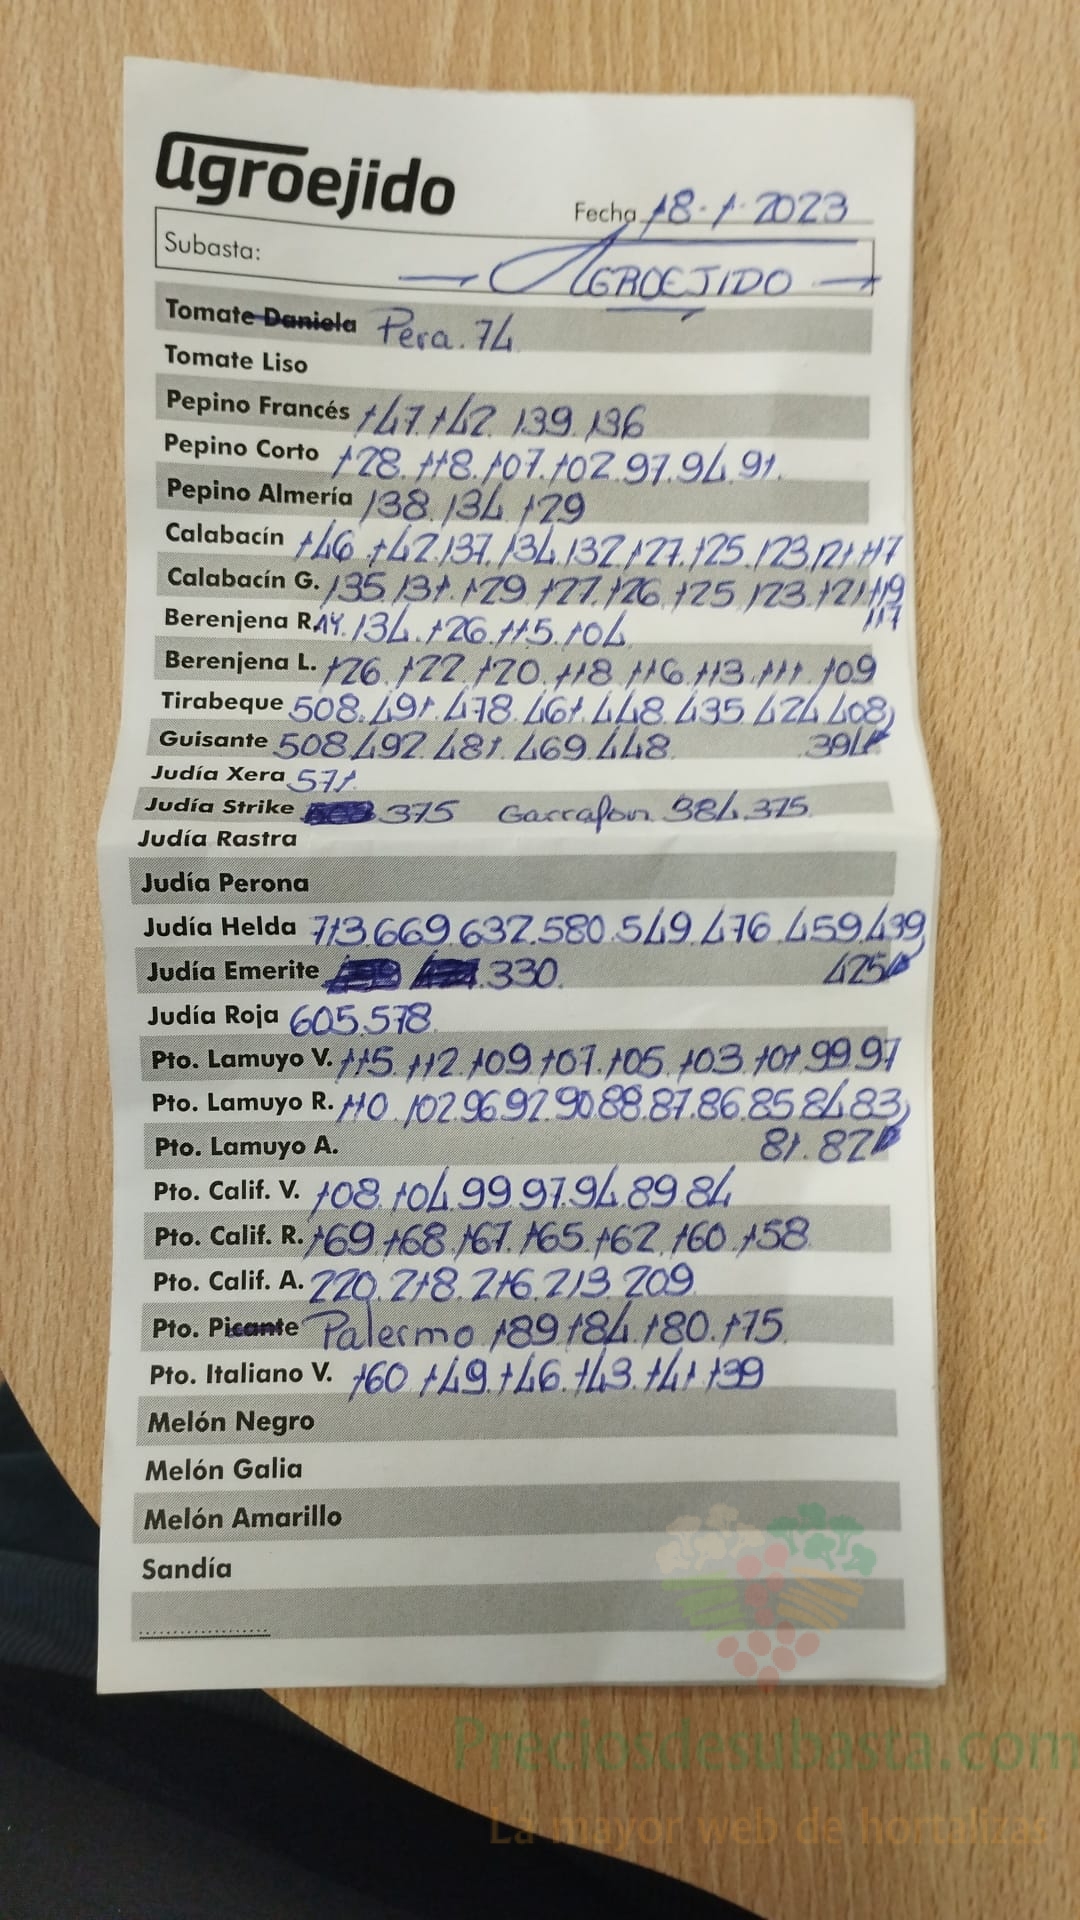 agroejido
Fecha 18-1-2023
Subasta: AGROEJIDO
Tomate Daniela Pera. 74
Tomate Liso
Pepino Francés 147. 142. 139. 136
Pepino Corto 128. 118. 107. 102. 97. 94. 91.
Pepino Almería 138. 134. 129
Calabacín 146. 142. 137. 134. 132. 127. 125. 123. 121. 117
Calabacín G. 135. 131. 129. 127. 126. 125. 123. 121. 119
117
Berenjena R.AY. 134. 126. 115. 104
Berenjena L. 126. 122. 120. 118. 116. 113. 111. 109
Tirabeque 508. 491. 478. 461. 448. 435. 424. 408
394
Guisante 508. 492. 481. 469. 448.
Judía Xera 571.
Judía Strike 375 Garrafon. 384. 375.
Judía Rastra
Judía Perona
Judía Helda 713. 669. 632. 580. 549. 476. 459. 439
425
Judía Emerite .330.
Judía Roja 605. 578.
Pto. Lamuyo V. 115. 112. 109. 107. 105. 103. 101. 99. 97
Pto. Lamuyo R. 110. 102. 96. 92. 90. 88. 87. 86. 85. 84. 83
81. 82
Pto. Lamuyo A.
Pto. Calif. V. 108. 104. 99. 97. 94. 89. 84
Pto. Calif. R. 169. 168. 167. 165. 162. 160. 158.
Pto. Calif. A. 220. 218. 216. 213. 209.
Pto. Picante Palermo 189. 184. 180. 175.
Pto. Italiano V. 160. 149. 146. 143. 141. 139
Melón Negro
Melón Galia
Melón Amarillo
Sandía
Preciosdesubasta.com
La mayor web de hortalizas